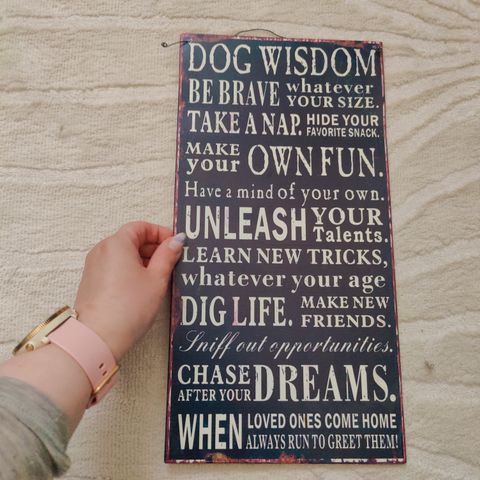 DOG WISDOM
BE BRAVE whatever YOUR SIZE.
TAKE A NAP. HIDE YOUR FAVORITE SNACK.
MAKE your OWN FUN.
Have a mind of your own.
UNLEASH YOUR Talents.
LEARN NEW TRICKS,
whatever your age
DIG LIFE. MAKE NEW FRIENDS.
Sniff out opportunities.
CHASE AFTER YOUR DREAMS.
WHEN LOVED ONES COME HOME ALWAYS RUN TO GREET THEM!